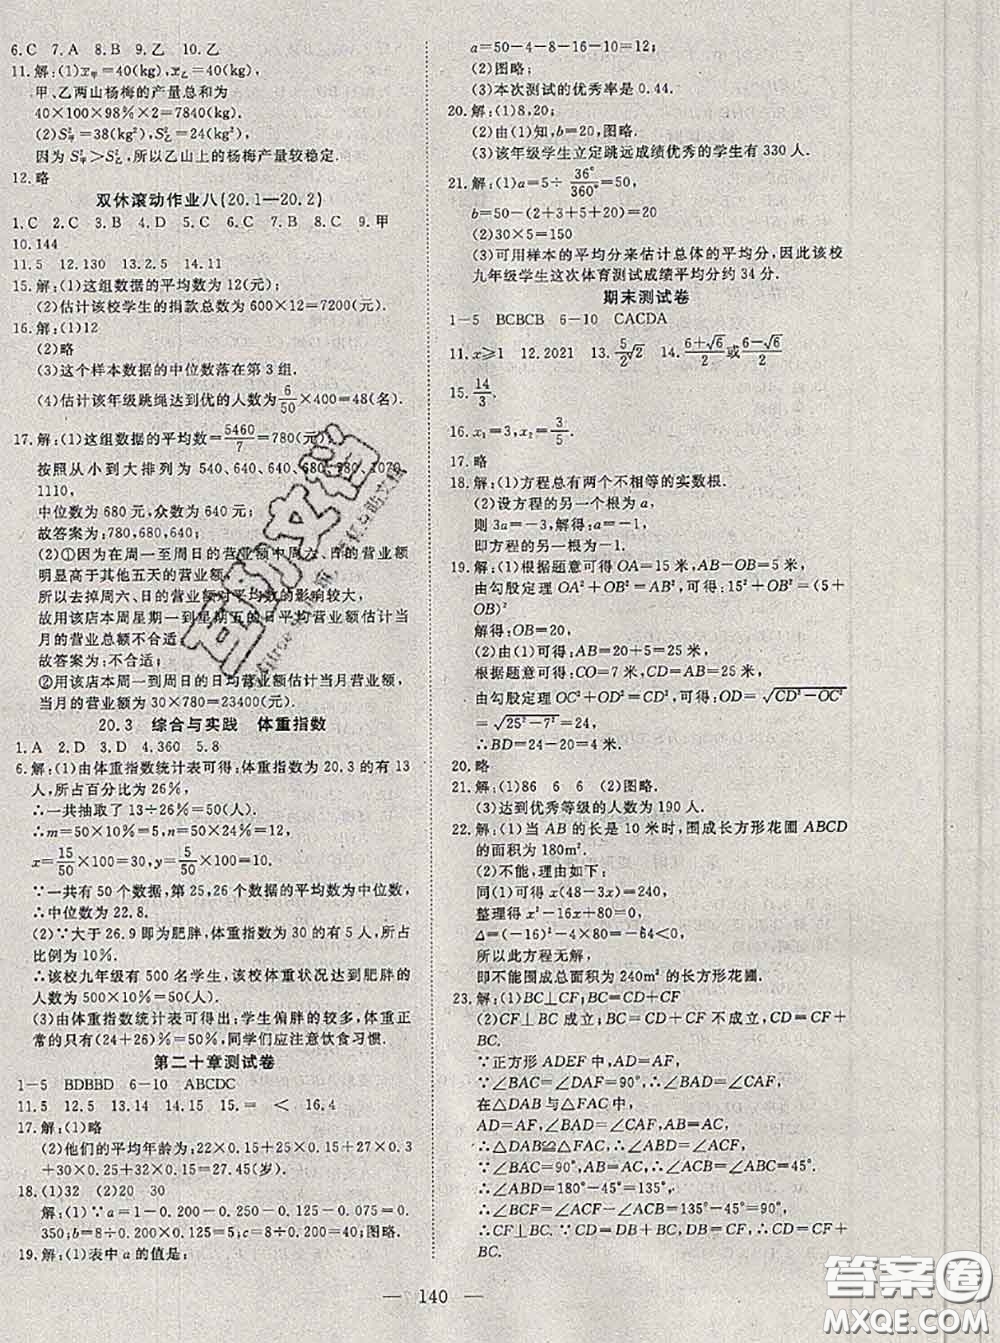 6.C 7.A 8.B 9.乙 10.乙
11.解:(1)x̄甲=40(kg),x̄乙=40(kg),
甲、乙两山杨梅的产量总和为
40×100×98%×2=7840(kg).
(2)S²甲=38(kg²),S²乙=24(kg²),
因为S²甲>S²乙,所以乙山上的杨梅产量较稳定.
12.略
双休滚动作业八(20.1—20.2)
1.C 2.C 3.C 4.D 5.A 6.D 7.B 8.C 9.甲
10.144
11.5 12.130 13.2.5 14.11
15.解:(1)这组数据的平均数为12(元);
(2)估计该校学生的捐款总数为600×12=7200(元).
16.解:(1)12
(2)略
(3)这个样本数据的中位数落在第3组.
(4)估计该年级跳绳达到优的人数为6/50×400=48(名).
17.解:(1)这组数据的平均数=5460/7=780(元);
按照从小到大排列为540、640、640、680、880、1070、
1110,
中位数为680元,众数为640元.
故答案为:780,680,640;
(2)①因为在周一至周日的营业额中周六、日的营业额
明显高于其他五天的营业额,
所以去掉周六、日的营业额对平均数的影响较大,
故用该店本周星期一到星期五的日平均营业额估计当
月的营业总额不合适;
故答案为:不合适;
②用该店本周一到周日的日均营业额估计当月营业额,
当月的营业额为30×780=23400(元).
20.3 综合与实践 体重指数
1.A 2.D 3.D 4.360 5.8
6.解:(1)由体重指数统计表可得:体重指数为20.3的有13
人,所占百分比为26%,
∴一共抽取了13÷26%=50(人).
∴m=50×10%=5,n=50×24%=12,
x=15/50×100=30,y=5/50×100=10.
∵一共有50个数据,第25,26个数据的平均数为中位数,
∴中位数为22.8.
(2)∵大于26.9即为肥胖,体重指数为30的有5人,所占
比例为10%.
∴该校九年级有500名学生,该校体重状况达到肥胖的
人数为500×10%=50(人).
(3)由体重指数统计表可得出:学生偏胖的较多,体重正
常的只有(24+26)%=50%,同学们应注意饮食习惯.
第二十章测试卷
1—5 BDBBD 6—10 ABCDC
11.5 12.5 13.14 14.15 15.= < 16.4
17.解:(1)略
(2)他们的平均年龄为:22×0.15+25×0.15+27×0.3
+30×0.25+32×0.15=27.45(岁).
18.(1)32 (2)20 30
解:(1)∵a=1-0.200-0.125-0.250-0.075=0.
350;b=8÷0.200×0.125=5;8÷0.200=40;图略.
19.解:(1)表中a的值是:
a=50-4-8-16-10=12;
(2)图略;
(3)本次测试的优秀率是0.44.
20.解:(1)8,20;
(2)由(1)知,b=20,图略.
(3)该年级学生立定跳远成绩优秀的学生有330人.
21.解:(1)a=5÷36°/360°=50,
b=50-(2+3+5+20)=20
(2)30×5=150
(3)可用样本的平均分来估计总体的平均分,因此该校
九年级学生这次体育测试成绩平均分约34分.
期末测试卷
1—5 BCBCB 6—10 CACDA
11.x≥1 12.2021 13.5/2√2 14.(6+√6)/2或(6-√6)/2
15.14/3.
16.x₁=3,x₂=3/5.
17.略
18.解:(1)方程总有两个不相等的实数根.
(2)设方程的另一个根为a,
则3a=-3,解得:a=-1,
即方程的另一根为-1.
19.解:(1)根据题意可得OA=15米,AB-OB=5米,
由勾股定理OA²+OB²=AB²,可得:15²+OB²=(5+
OB)²
解得:OB=20,
(2)由(1)可得:AB=20+5=25米,
根据题意可得:CO=7米,CD=AB=25米,
由勾股定理OC²+OD²=CD²,可得:OD=√(CD²-OC²)
=√(25²-7²)=24,
∴BD=24-20=4米.
20.略
21.解:(1)86 6 6 (2)图略.
(3)达到优秀等级的人数为190人.
22.解:(1)当AB的长是10米时,围成长方形花圃ABCD
的面积为180m².
(2)不能,理由如下:
同(1)可得x(48-3x)=240,
整理得x²-16x+80=0,
Δ=(-16)²-4×80=-64<0,
所以此方程无解,
即不能围成总面积为240m²的长方形花圃.
23.解:(1)BC⊥CF;BC=CD+CF
(2)CF⊥BC成立;BC=CD+CF不成立,CD=CF+
BC.
∵正方形ADEF中,AD=AF,
∵∠BAC=∠DAF=90°,∴∠BAD=∠CAF,
在△DAB与△FAC中,
AD=AF,∠BAD=∠CAF,AB=AC,
∴△DAB≌△FAC,∴∠ABD=∠ACF,
∵∠BAC=90°,AB=AC,∴∠ACB=∠ABC=45°.
∴∠ABD=180°-45°=135°,∴∠ACF=∠ABD=135°,
∴∠BCF=∠ACF-∠ACB=135°-45°=90°,
∴CF⊥BC.∵CD=DB+BC,DB=CF,∴CD=CF+
BC.
140
答案圈
MXQE.COM